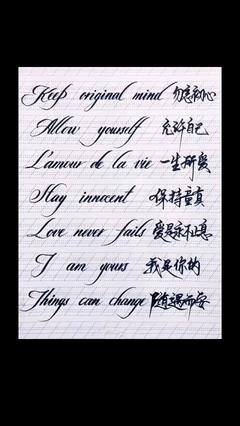 Keep original mind 勿忘初心
Allow yourself 允许自己
L'amour de la vie 一生所爱
Stay innocent 保持童真
Love never fails 爱是永不止息
I am yours 我是你的
Things can change 随遇而安